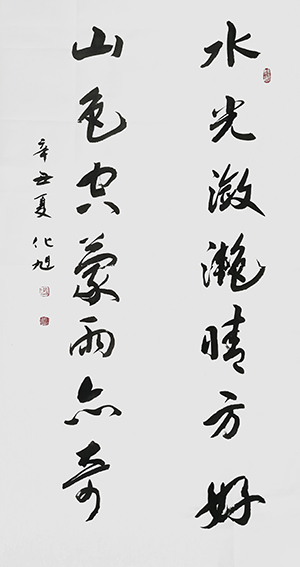 水光潋滟晴方好
山色空蒙雨亦奇
辛丑夏 化旭